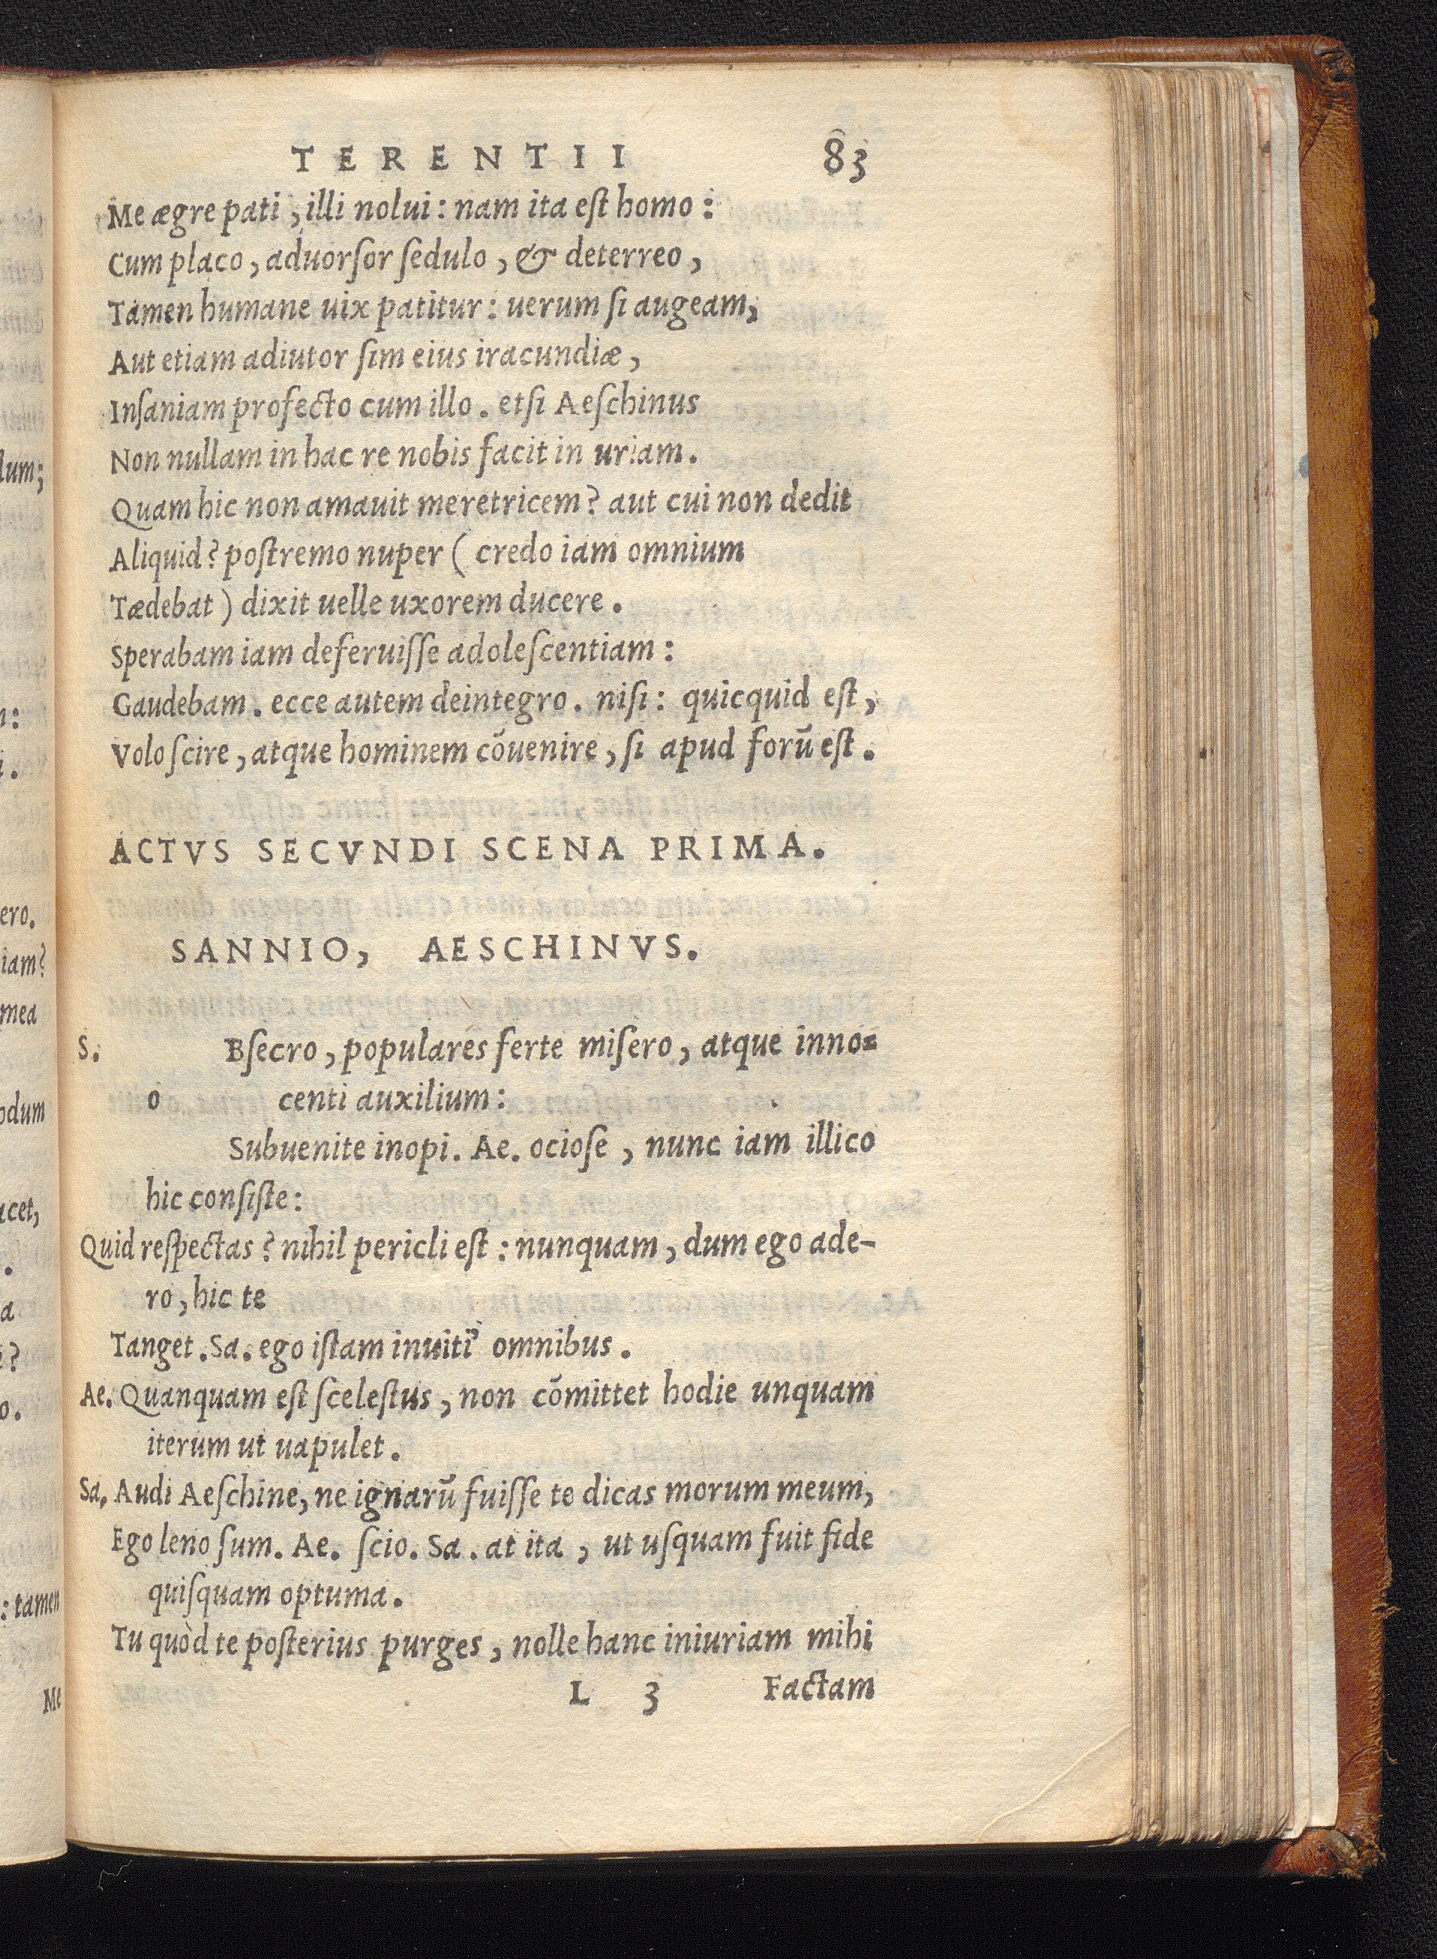 TERENTII 83
Me ægre pati, illi nolui: nam ita eſt homo:
Cum placo, aduorſor ſedulo, & deterreo,
Tamen humane uix patitur: uerum ſi augeam,
Aut etiam adiutor ſim eius iracundiæ,
Inſaniam profecto cum illo. etſi Aeſchinus
Non nullam in hac re nobis facit in uriam.
Quam hic non amauit meretricem? aut cui non dedit
Aliquid? poſtremo nuper (credo iam omnium
Tædebat) dixit uelle uxorem ducere.
Sperabam iam deferuiſſe adoleſcentiam:
Gaudebam. ecce autem deintegro. niſi: quicquid eſt,
Volo ſcire, atque hominem cōuenire, ſi apud forū eſt.
ACTVS SECVNDI SCENA PRIMA.
SANNIO, AESCHINVS.
S. Bſecro, populares ferte miſero, atque inno=
o centi auxilium:
Subuenite inopi. Ae. ocioſe, nunc iam illico
hic conſiſte:
Quid reſpectas? nihil pericli eſt: nunquam, dum ego ade-
ro, hic te
Tanget. Sa. ego iſtam inuitiꝰ omnibus.
Ae. Quanquam eſt ſceleſtus, non cōmittet hodie unquam
iterum ut uapulet.
Sa. Audi Aeſchine, ne ignarū fuiſſe te dicas morum meum,
Ego leno ſum. Ae. ſcio. Sa. at ita, ut uſquam fuit fide
quiſquam optuma.
Tu quòd te poſterius purges, nolle hanc iniuriam mihi
L 3 Factam
lum;
ero.
iam?
mea
odum
acet,
: tamen
Me